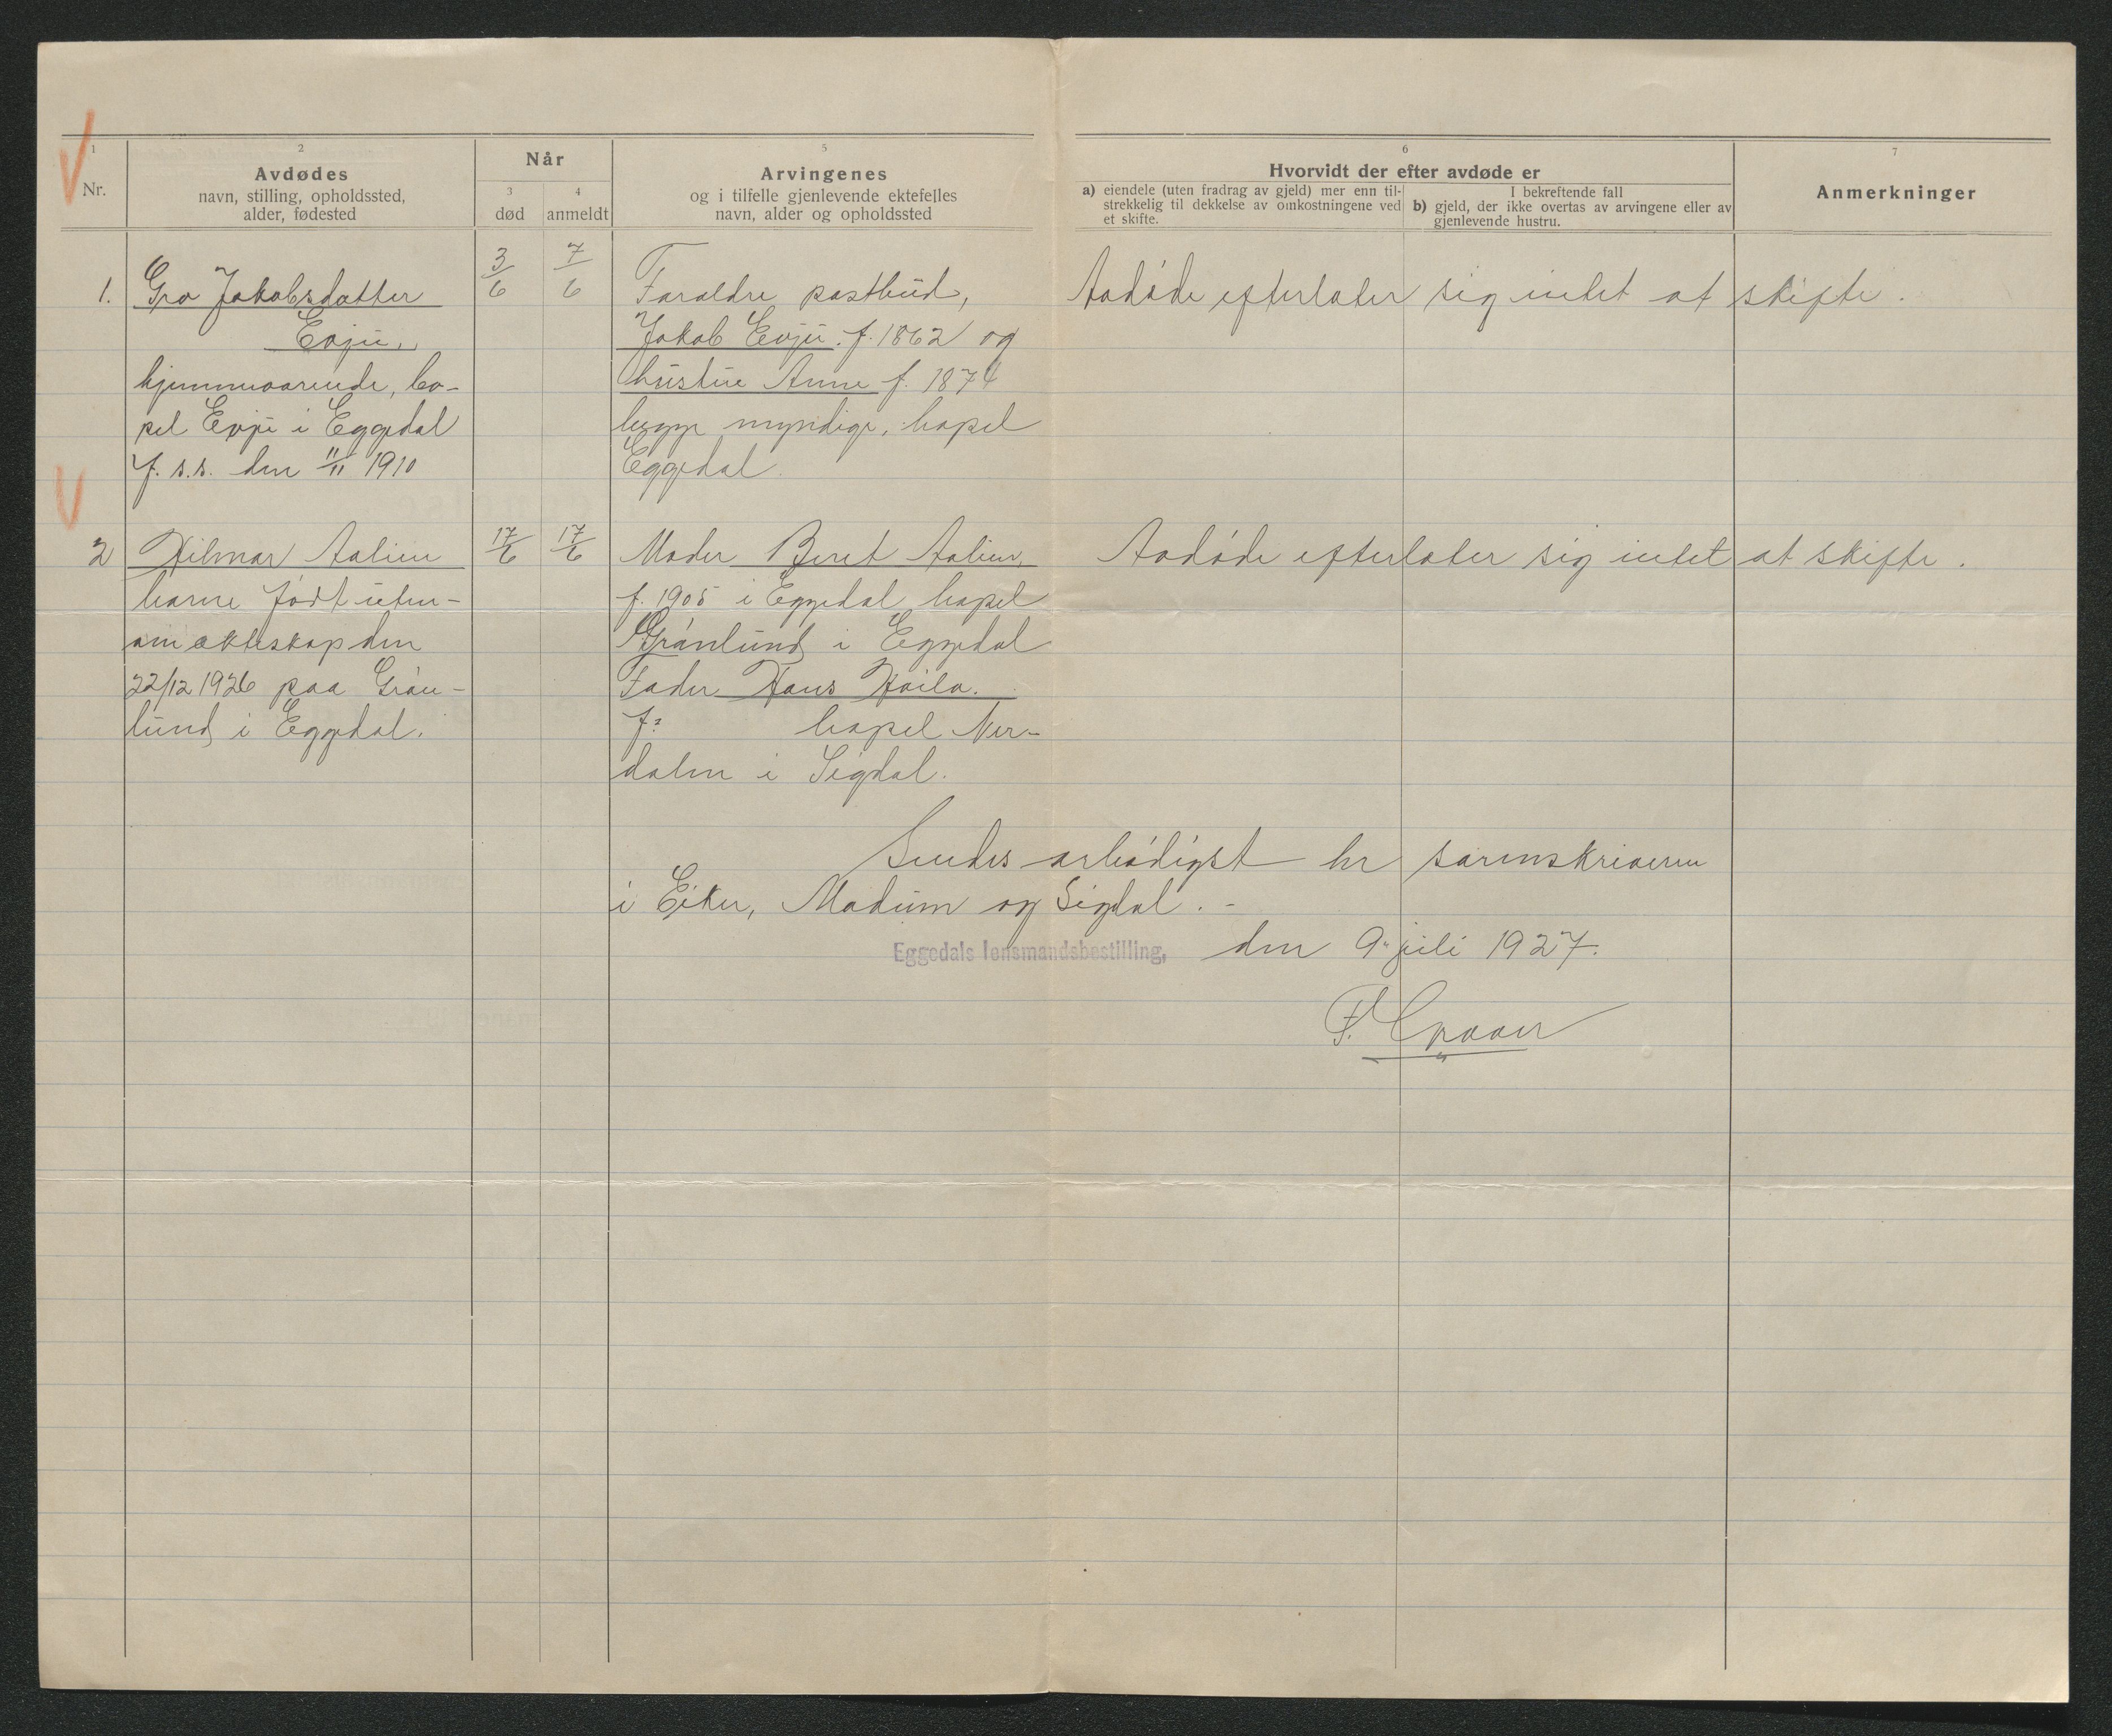 1
2
Når
5
6
7
Nr.
Avdødes
navn, stilling, opholdssted,
alder, fødested
3
død
4
anmeldt
Arvingenes
og i tilfelle gjenlevende ektefelles
navn, alder og opholdssted
Hvorvidt der efter avdøde er
a) eiendele (uten fradrag av gjeld) mer enn til-
strekkelig til dekkelse av omkostningene ved
et skifte.
I bekreftende fall
b) gjeld, der ikke overtas av arvingene eller av
gjenlevende hustru.
Anmerkninger
1.
Gro Jakobsdatter
Evju,
hjemmeværende, bo-
pel Evju i Eggedal
f. s.s. den 11/11 1910
3/6
7/6
Foræhldre postbud,
Jakob Evju f. 1862 og
hustru Anne f. 1874
begge myndige, bopel
Eggedal.
Avdøde efterlater sig intet at skifte.
2
Hilmar Aalien
barne født uten-
om ækteskap den
22/12 1926 paa Grøn-
lund i Eggedal.
17/6
17/6
Moder Beret Aalien,
f. 1905 i Eggedal bopel
Grønlund i Eggedal
Fader Hans
f: bopel Ner-
dalen i Sigdal.
Avdøde efterlater sig intet at skifte.
Sendes ærbødigst hr sorenskriveren
i Eiker, Modum og Sigdal. -
Eggedals lensmandsbestilling, den 9 juli 1927.